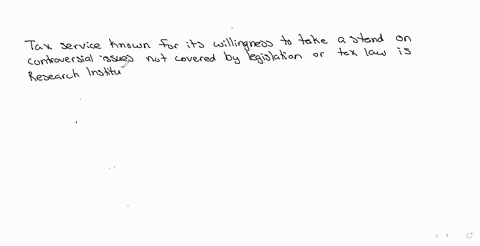 Tax service known for its willingness to take a stand on
controversial issues not covered by legislation or tax law is
Research Institu